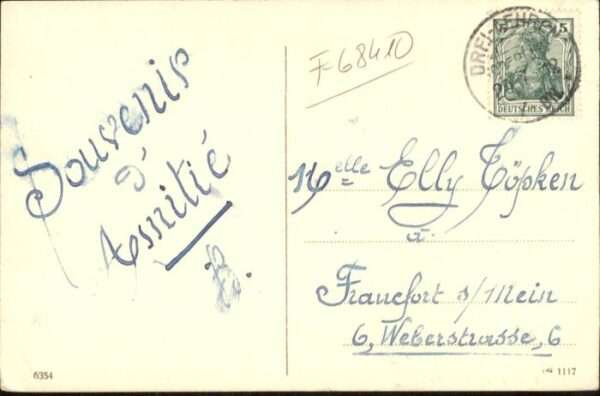 Souvenir
d'
Amitié
B.
F 68410
DREI-AEHREN
5
DEUTSCHES REICH
Melle Elly Töpken
à
Francfort s/Mein
6, Weberstrasse, 6
6354
1117